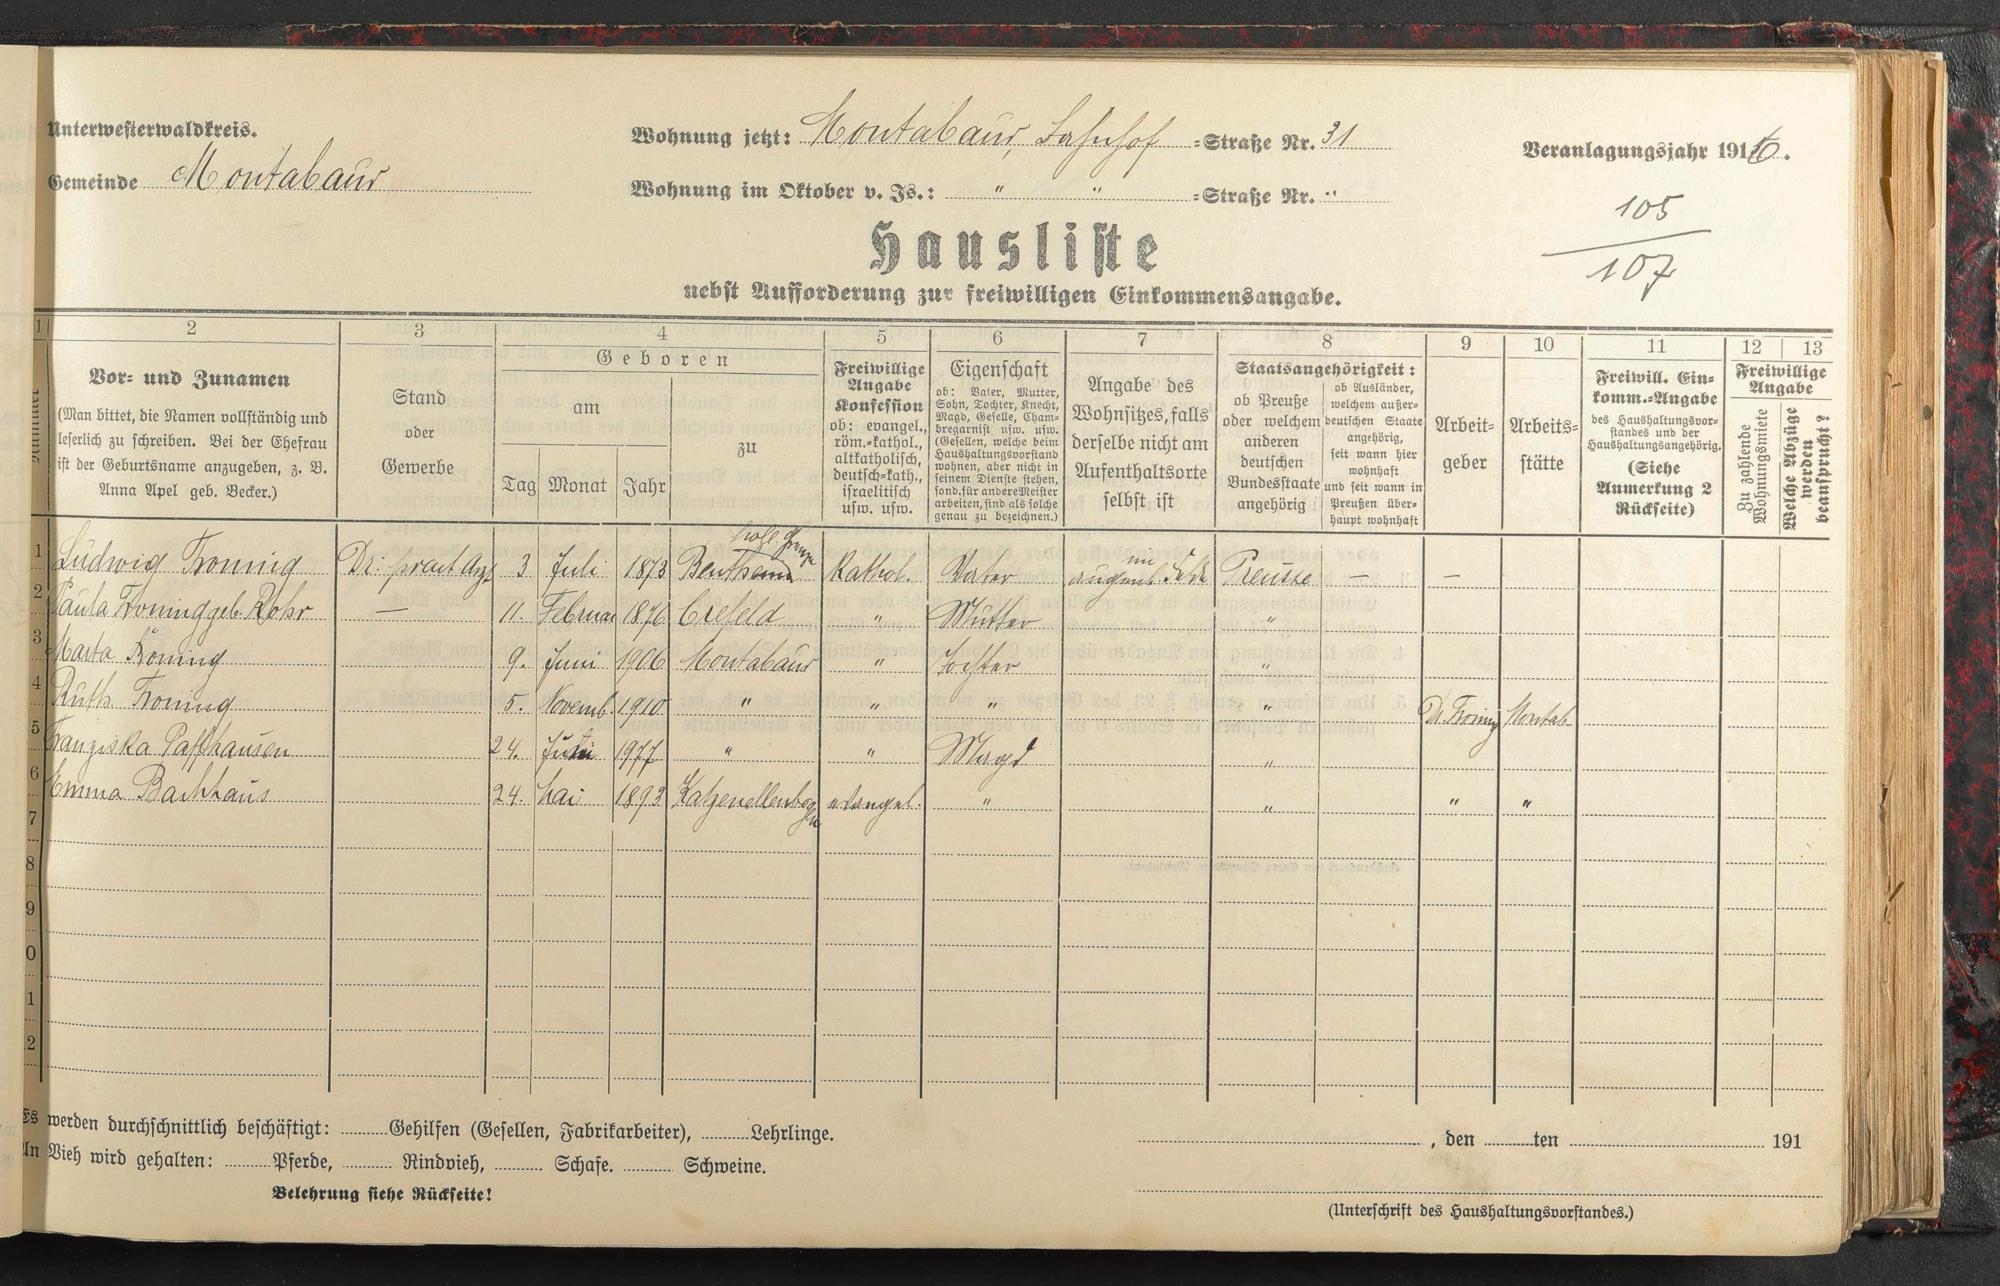 Unterwesterwaldkreis.
Gemeinde Montabaur
Wohnung jetzt: Montabaur, Bahnhof =Straße Nr. 31
Wohnung im Oktober v. Js.: " " =Straße Nr. "
Veranlagungsjahr 1916.
105
107
Hausliste
nebst Aufforderung zur freiwilligen Einkommensangabe.
1 2 3 4 5 6 7 8 9 10 11 12 13
Nummer
Vor- und Zunamen
(Man bittet, die Namen vollständig und
leserlich zu schreiben. Bei der Ehefrau
ist der Geburtsname anzugeben, z. B.
Anna Apel geb. Becker.)
Stand
oder
Gewerbe
Geboren
am
Tag Monat Jahr
zu
Freiwillige
Angabe
Konfession
ob: evangel.,
röm.-kathol.,
altkatholisch,
deutsch-kath.,
israelitisch
usw. usw.
Eigenschaft
ob: Vater, Mutter,
Sohn, Tochter, Knecht,
Magd, Geselle, Cham-
bregarnist usw. usw.
(Gesellen, welche beim
Haushaltungsvorstand
wohnen, aber nicht in
seinem Dienste stehen,
sond. für andere Meister
arbeiten, sind als solche
genau zu bezeichnen.)
Angabe des
Wohnsitzes, falls
derselbe nicht am
Aufenthaltsorte
selbst ist
Staatsangehörigkeit:
ob Preuße
oder welchem
anderen
deutschen
Bundesstaate
angehörig
ob Ausländer,
welchem außer-
deutschen Staate
angehörig,
seit wann hier
wohnhaft
und seit wann in
Preußen über-
haupt wohnhaft
Arbeit-
geber
Arbeits-
stätte
Freiwill. Ein-
komm.-Angabe
des Haushaltungsvor-
standes und der
Haushaltungsangehörig.
(Siehe
Anmerkung 2
Rückseite)
Freiwillige
Angabe
Zu zahlende
Wohnungsmiete
Welche Abzüge
werden
beansprucht?
1 Ludwig Froning Dr. pract Arzt 3 Juli 1873 Bentheim Kathol. Vater im Preusse — —
2 Paula Froning geb. Rohr — 11. Februar 1876 Crefeld " Mutter "
3 Marta Froning 9. Juni 1906 Montabaur " Tochter "
4 Ruth Froning 5. Novemb. 1910 " " " "
5 Franziska Paffhausen 24. 1977 " " Magd " Dr. Froning Montab.
6 Emma Bachhaus 24. Mai 1893 Katzenellenbogen evangel. " " " "
7
8
9
0
1
2
Es werden durchschnittlich beschäftigt: Gehilfen (Gesellen, Fabrikarbeiter), Lehrlinge.
An Vieh wird gehalten: Pferde, Rindvieh, Schafe. Schweine.
Belehrung siehe Rückseite!
, den ten 191
(Unterschrift des Haushaltungsvorstandes.)